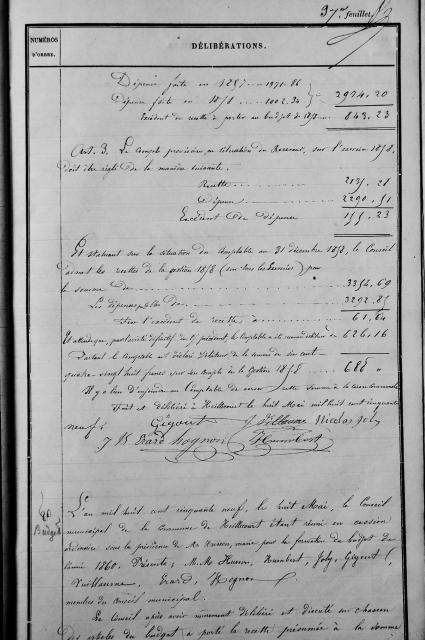 37me feuillet
NUMÉROS
D'ORDRE.
DÉLIBÉRATIONS.
Dépense faite en 1857 .... 1971.86
Dépense faite en 1858 .... 1002.34
2974.20
Excédent de recette à porter au budget de 1858 .... 843.23
Art. 3. Le compte provisoire en situation du Receveur, sur l'exercice 1858,
doit être réglé de la manière suivante.
Recette .... 2135.28
Dépense .... 2290.51
Excédent de dépense 155.23
Et statuant sur la situation du Comptable au 31 décembre 1858, le Conseil
admet les recettes de la gestion 1858 (sur tous les Exercices) pour
la somme de .... 3354.69
Les dépenses de .... 3292.85
l'excédent de recette à .... 61.84
Et attendu que, par le précédent, le Comptable a été reconnu débiteur de 626.16
Partant le Comptable est déclaré débiteur de la somme de six cent
quatre-vingt huit francs sur son Compte de la Gestion 1858 .... 688 "
Il y a lieu d'enjoindre au Comptable de verser cette Somme à la Caisse Communale
Fait et délibéré à Heillecourt le huit Mai mil huit cent cinquante
neuf.
Gigout J Villaume Nicolas Joly
J B Erard Hognon Humbert
Budget
L'an mil huit cent cinquante neuf, le huit Mai, le Conseil
municipal de la Commune de Heillecourt étant réuni en session
ordinaire sous la présidence de Mr Husson, maire pour la formation du budget de
l'année 1860. Présents, M.Ms Husson, Humbert, Joly, Gigout,
Vuillaume, Erard, Hognon
membres du Conseil municipal.
Le Conseil après avoir mûrement délibéré et discuté sur chacun
des articles du budget a porté la recette présumée à la somme